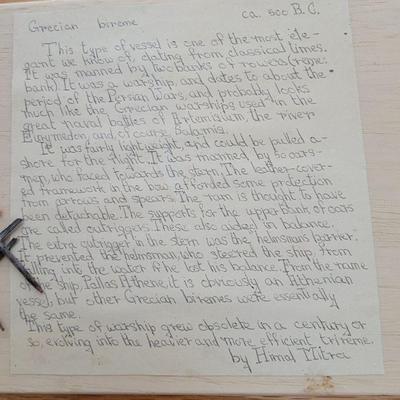 Grecian bireme ca. 500 B.C.
This type of vessel is one of the most ele-
gant we know of, dating from classical times.
It was manned by two banks of rowers (reme:
bank). It was a warship, and dates to about the
period of the Persian Wars, and probably looks
much like the Grecian warships used in the
great naval battles of Artemisium, the river
Eurymedon, and, of course, Salamis.
It was fairly lightweight, and could be pulled a-
shore for the night. It was manned by 50 oars-
men, who faced towards the stern. The leather-cover-
ed framework in the bow afforded some protection
from arrows and spears. The ram is thought to have
been detachable. The supports for the upper bank of oars
are called outriggers. These also aided in balance.
The extra outrigger in the stern was the helmsman's barrier.
It prevented the helmsman, who steered the ship, from
falling into the water if he lost his balance. From the name
of the ship, Pallas Athene, it is obviously an Athenian
vessel, but other Grecian biremes were essentially
the same.
This type of warship grew obsolete in a century or
so, evolving into the heavier and more efficient trireme.
by Himal Mitra